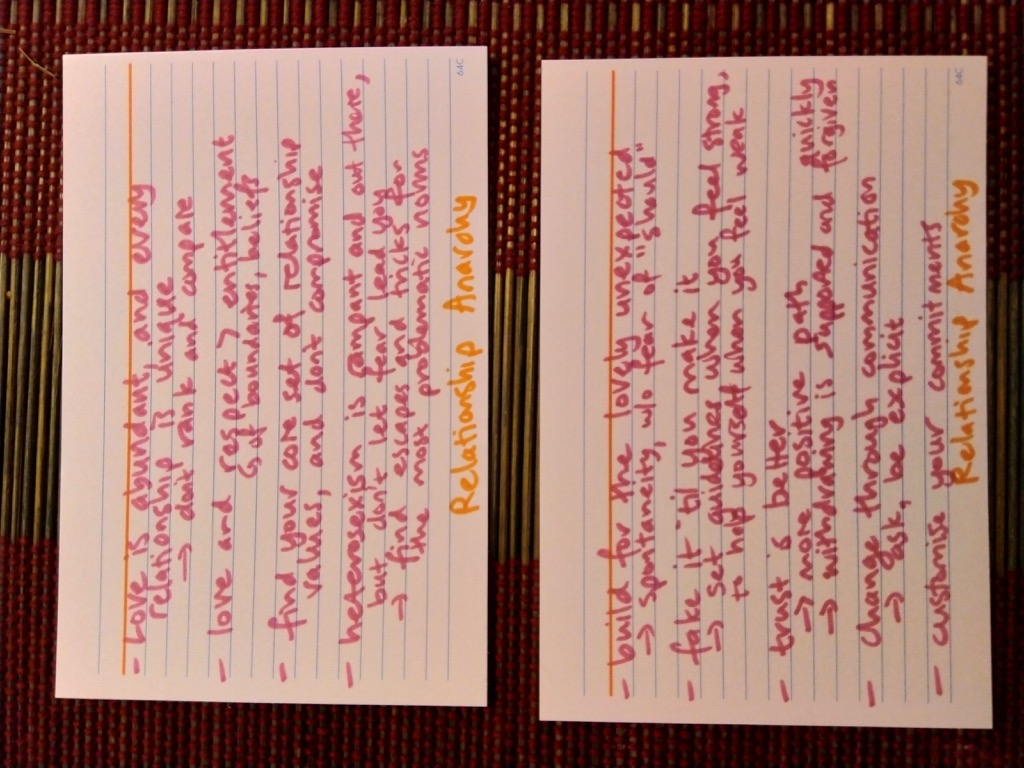 - Love is abundant, and every
relationship is unique
→ don't rank and compare
- love and respect > entitlement
↳ of boundaries, beliefs
- find your core set of relationship
values, and don't compromise
- heterosexism is rampant and out there,
but don't let fear lead you
→ find escapes and tricks for
the most problematic norms
Relationship Anarchy
64C
- build for the lovely unexpected
→ spontaneity, w/o fear of "should"
- fake it 'til you make it
→ set guidelines when you feel strong,
to help yourself when you feel weak
- trust is better
→ more positive path
→ withdrawing is supported and quickly forgiven
- change through communication
→ ask, be explicit
- customise your commitments
Relationship Anarchy
64C